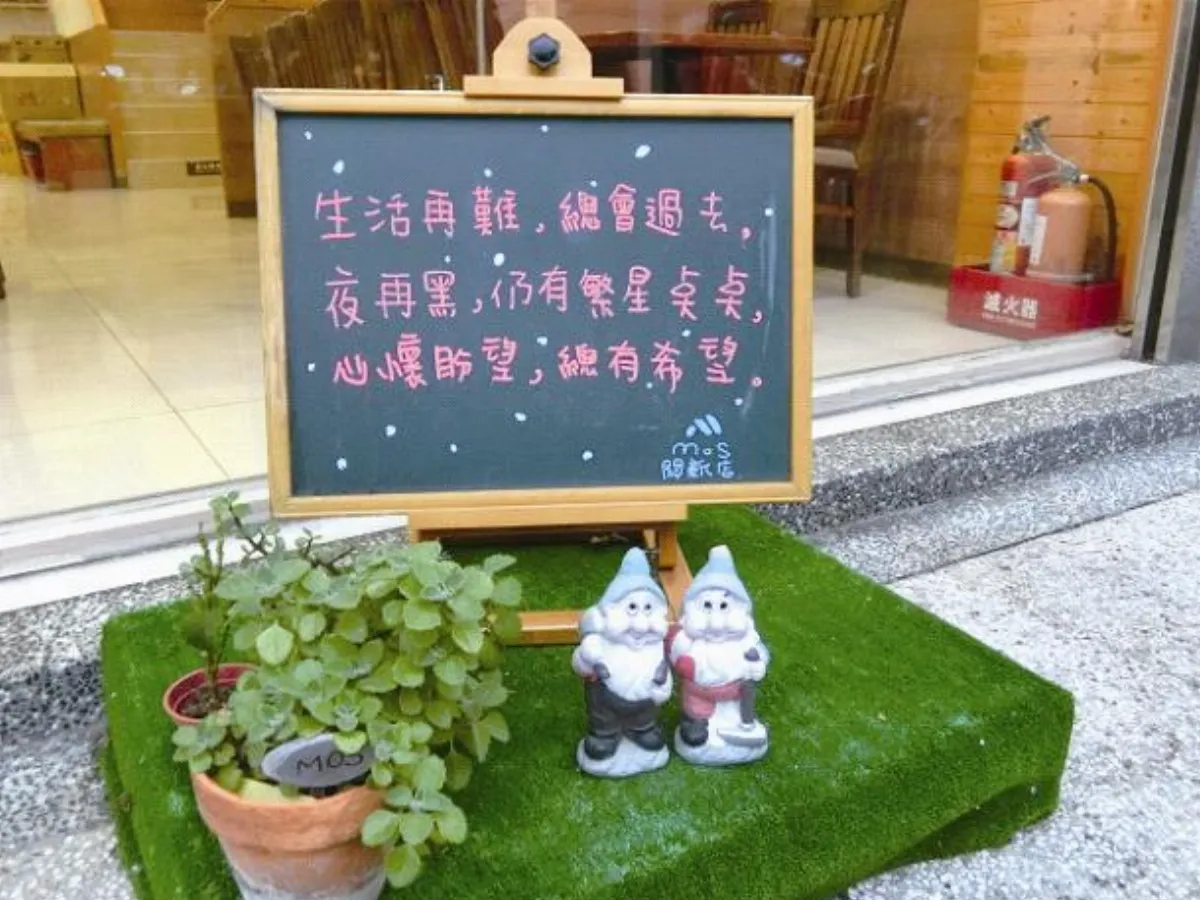 生活再難,總會過去,
夜再黑,仍有繁星点点,
心懷盼望,總有希望。
MOS
關新店
MOS
滅火器